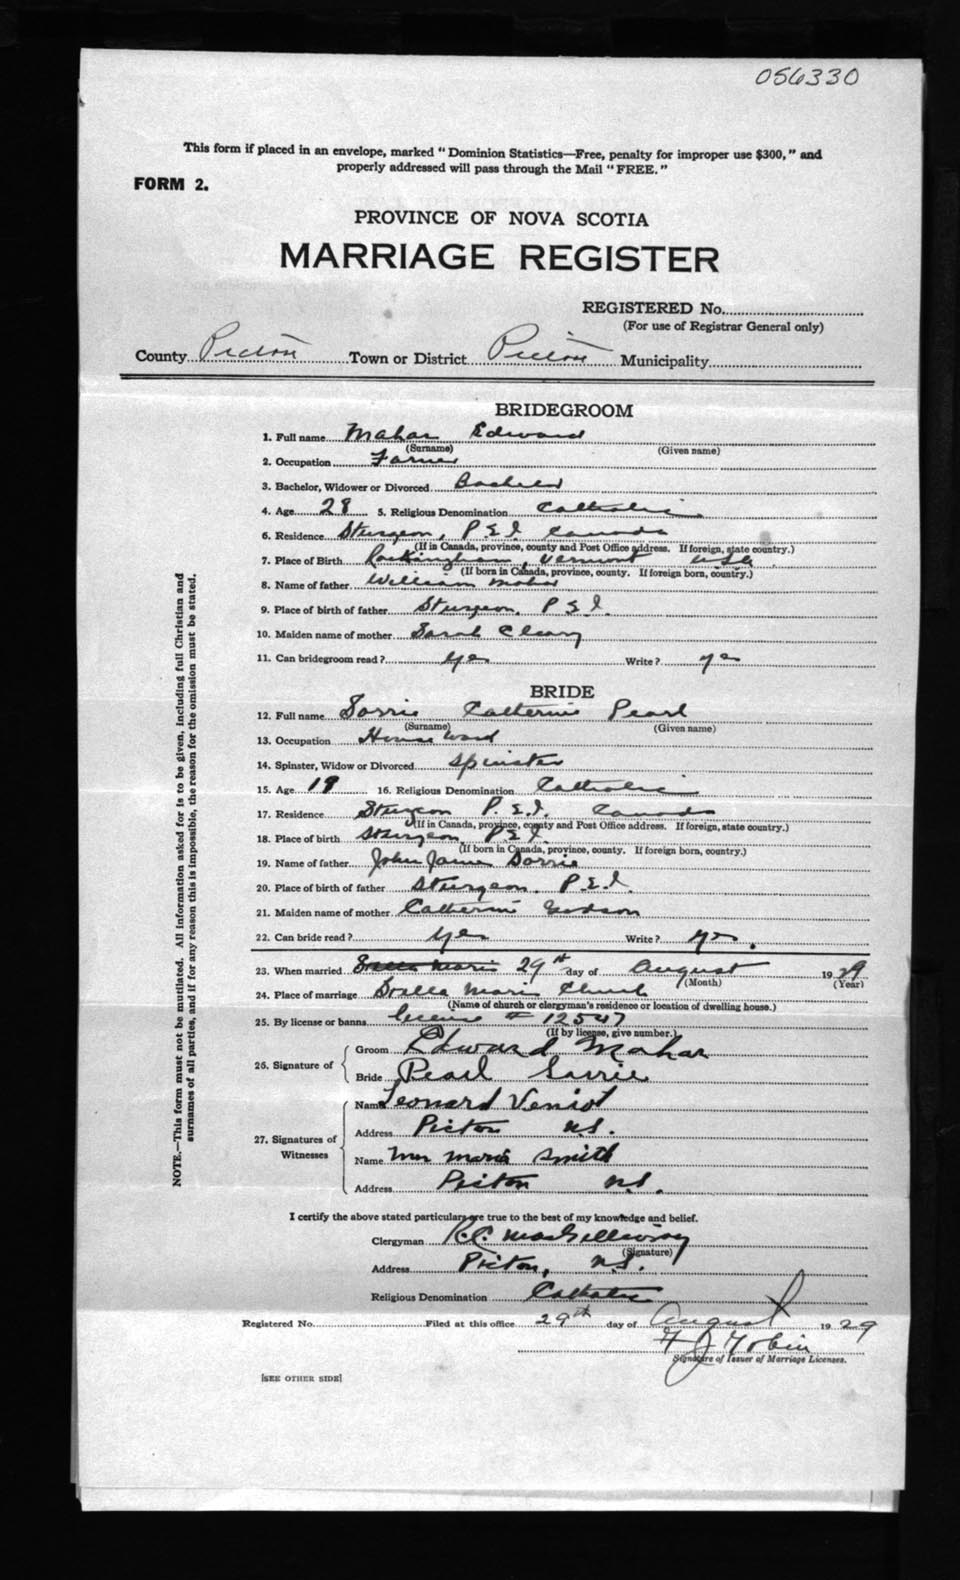 056330
This form if placed in an envelope, marked "Dominion Statistics—Free, penalty for improper use $300," and
properly addressed will pass through the Mail "FREE."
FORM 2.
PROVINCE OF NOVA SCOTIA
MARRIAGE REGISTER
REGISTERED No.
(For use of Registrar General only)
County Pictou Town or District Pictou Municipality
BRIDEGROOM
1. Full name Mahar Edward
(Surname) (Given name)
2. Occupation Farmer
3. Bachelor, Widower or Divorced Bachelor
4. Age 28 5. Religious Denomination Catholic
6. Residence Sturgeon, P E I Canada
(If in Canada, province, county and Post Office address. If foreign, state country.)
7. Place of Birth Rockingham, Vermont USA
(If born in Canada, province, county. If foreign born, country.)
8. Name of father William Mahar
9. Place of birth of father Sturgeon, P E I.
10. Maiden name of mother Sarah Cleary
11. Can bridegroom read? yes Write? yes
BRIDE
12. Full name Sorrie Catherine Pearl
(Surname) (Given name)
13. Occupation House Work
14. Spinster, Widow or Divorced Spinster
15. Age 19 16. Religious Denomination Catholic
17. Residence Sturgeon P. E. I. Canada
(If in Canada, province, county and Post Office address. If foreign, state country.)
18. Place of birth Sturgeon, P E I.
(If born in Canada, province, county. If foreign born, country.)
19. Name of father John James Sorrie
20. Place of birth of father Sturgeon. P.E.I.
21. Maiden name of mother Catherine
22. Can bride read? yes Write? yes.
23. When married Stella Maris 29th day of August 1929
(Month) (Year)
24. Place of marriage Stella Maris Church
(Name of church or clergyman's residence or location of dwelling house.)
25. By license or banns license # 12547
(If by license, give number.)
26. Signature of
Groom Edward Mahar
Bride Pearl Sorrie
27. Signatures of Witnesses
Name Leonard Veniot
Address Pictou N.S.
Name Mrs Maria Smith
Address Pictou N.S.
I certify the above stated particulars are true to the best of my knowledge and belief.
Clergyman R.C. MacGillivray
(Signature)
Address Pictou, N.S.
Religious Denomination Catholic
Registered No. Filed at this office 29th day of August 1929
F J Tobin
Signature of Issuer of Marriage Licenses.
[SEE OTHER SIDE]
NOTE.—This form must not be mutilated. All information asked for is to be given, including full Christian and
surnames of all parties, and if for any reason this is impossible, the reason for the omission must be stated.